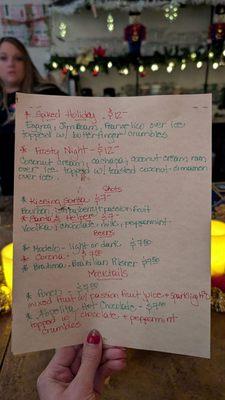 * Spiked Holiday - $12
Espring, Jim Beam, Frangelico over ice
topped w/ butterfinger crumbles
* Frosty Night - $12
Coconut cream, cachaca, coconut cream, rum
over ice. topped w/ toasted coconut + cinnamon
over ice.
Shots
* Kissing Santa $7
Bourbon, passion fruit
* Santa's Helper $7-
Vodka, chocolate milk, peppermint.
Beers
* Modelo - light or dark $7.50
* Corona - $7.50
* Brahma - Brazilian Pilsner $7.50
Mocktails
* Punch - $
mixed fruit w/ passion fruit juice + sparkling
* Hot Chocolate -
topped w/ chocolate + peppermint
crumbles